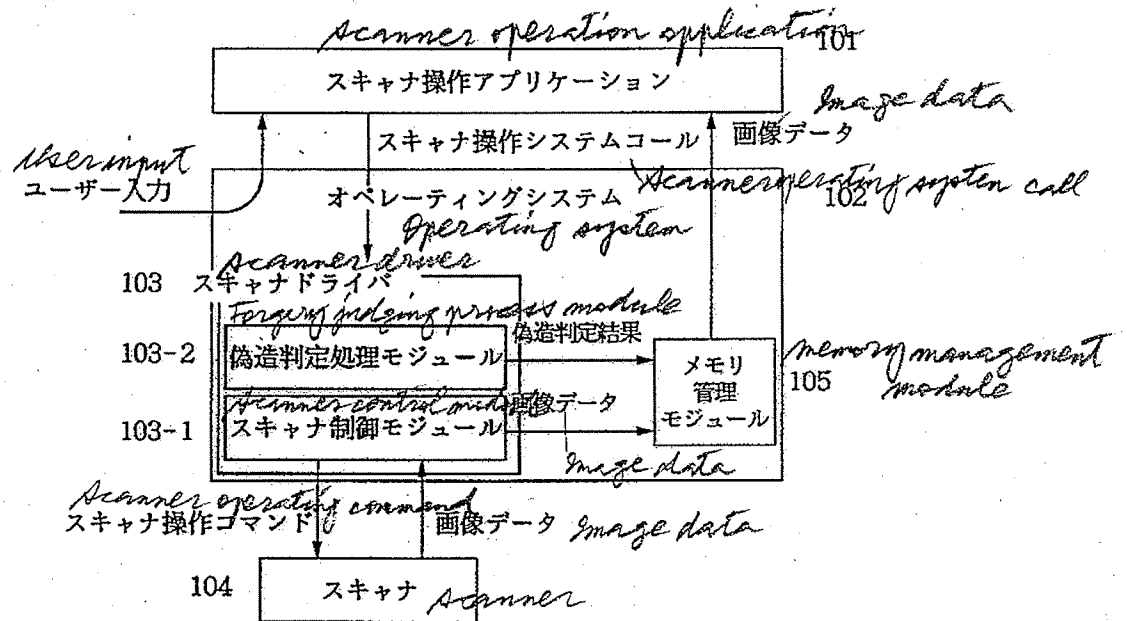 Scanner operation application
101
スキャナ操作アプリケーション
Image data
スキャナ操作システムコール
画像データ
User input
ユーザー入力
Scanner operating system call
102
オペレーティングシステム
Operating system
Scanner driver
103 スキャナドライバ
Forgery judging process module
偽造判定結果
103-2 偽造判定処理モジュール
メモリ
管理
モジュール
105
memory management
module
Scanner control module
画像データ
103-1 スキャナ制御モジュール
Image data
Scanner operating command
スキャナ操作コマンド
画像データ Image data
104 スキャナ Scanner